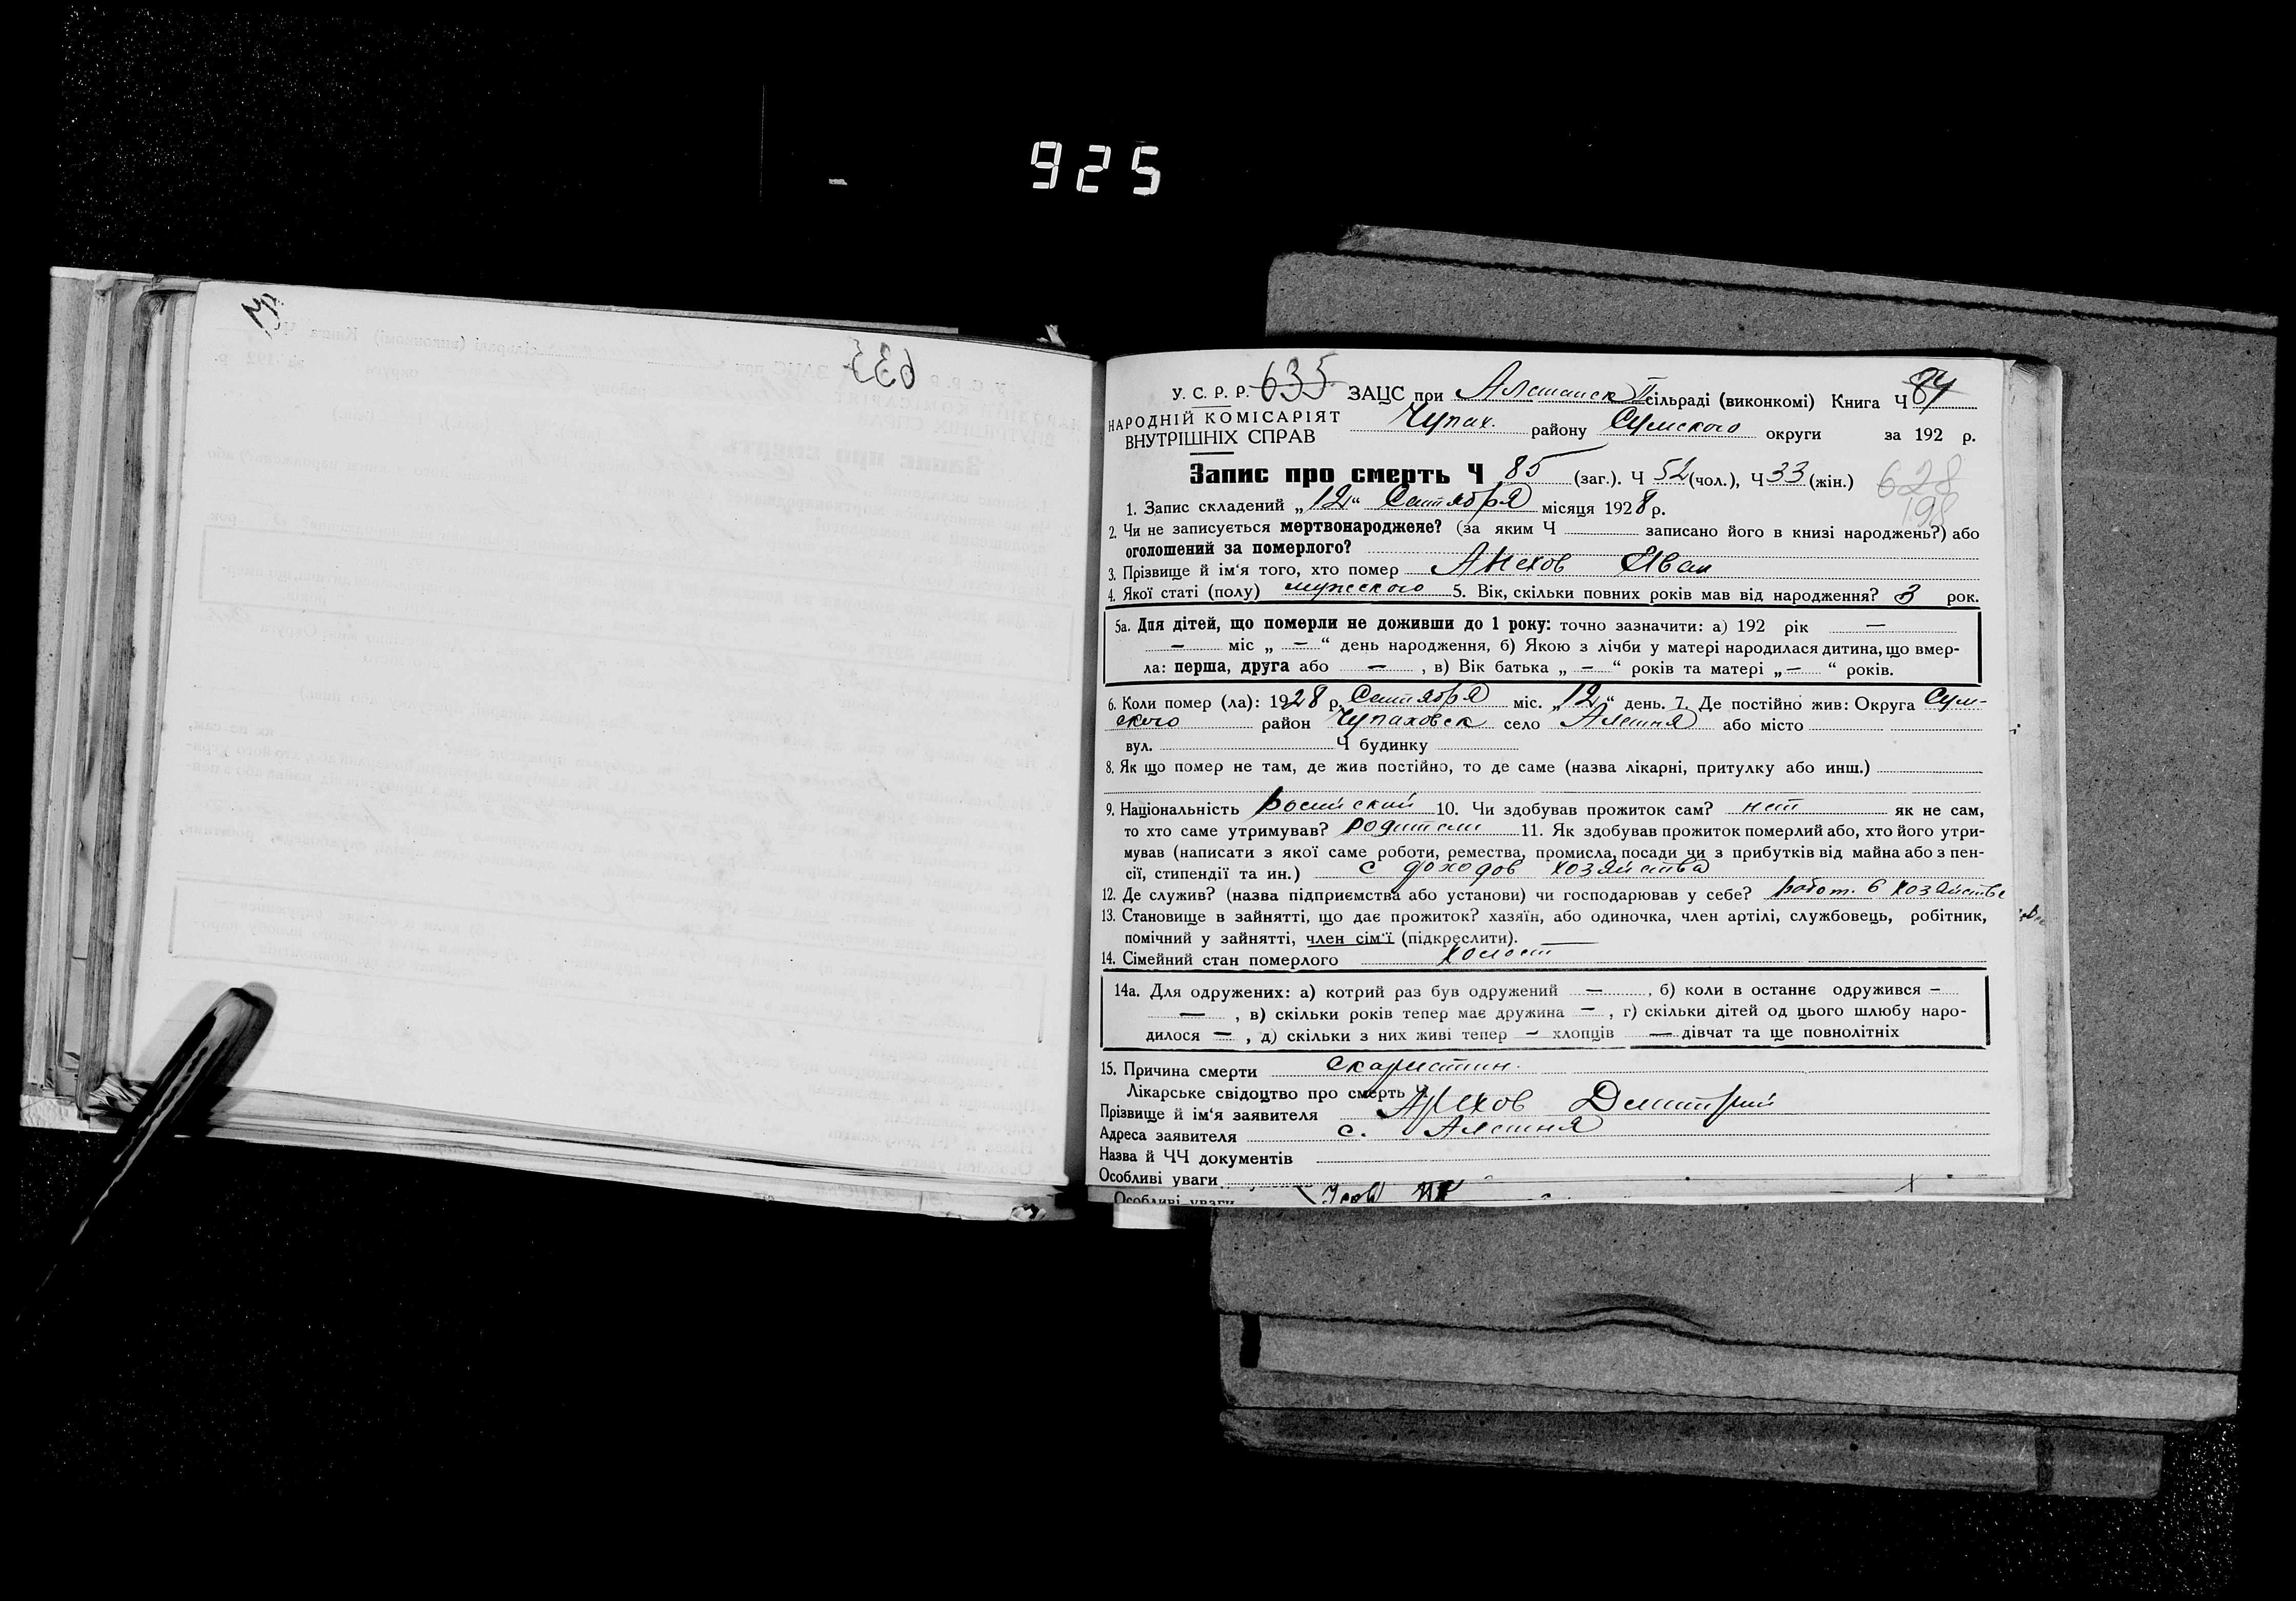 925
633
У. С. Р. Р. 635 ЗАЦС при Алешанск II сільраді (виконкомі) Книга Ч 84
НАРОДНІЙ КОМІСАРІЯТ
ВНУТРІШНІХ СПРАВ
Чупах. району Сумского округи за 192 р.
Запис про смерть Ч 85 (заг.). Ч 52 (чол.), Ч 33 (жін.)
628
198
1. Запис складений „12“ Сентября місяця 1928 р.
2. Чи не записується мертвонароджене? (за яким Ч записано його в книзі народжень?) або
оголошений за померлого?
3. Прізвище й ім'я того, хто помер Иван
4. Якої статі (полу) мужского 5. Вік, скільки повних років мав від народження? 3 рок.
5а. Для дітей, що померли не доживши до 1 року: точно зазначити: а) 192 рік —
— міс „ — “ день народження, б) Якою з лічби у матері народилася дитина, що вмер-
ла: перша, друга або — , в) Вік батька „ — “ років та матері „ — “ років.
6. Коли помер (ла): 1928 р. Сентября міс. „12“ день. 7. Де постійно жив: Округа Сум-
ского район Чупаховск село Алешня або місто
вул. Ч будинку
8. Як що помер не там, де жив постійно, то де саме (назва лікарні, притулку або инш.)
9. Національність росийский 10. Чи здобував прожиток сам? нет як не сам,
то хто саме утримував? родители 11. Як здобував прожиток померлий або, хто його утри-
мував (написати з якої саме роботи, ремества, промисла, посади чи з прибутків від майна або з пен-
сії, стипендії та ин.) с доходов хозяйства
12. Де служив? (назва підприємства або установи) чи господарював у себе? работ. в хозяйстве
13. Становище в зайнятті, що дає прожиток? хазяїн, або одиночка, член артілі, службовець, робітник,
помічний у зайнятті, член сім'ї (підкреслити).
14. Сімейний стан померлого холост
14а. Для одружених: а) котрий раз був одружений — , б) коли в останнє одружився —
— , в) скільки років тепер має дружина — , г) скільки дітей од цього шлюбу наро-
дилося — , д) скільки з них живі тепер — хлопців — дівчат та ще повнолітніх
15. Причина смерти скарлатин.
Лікарське свідоцтво про смерть
Прізвище й ім'я заявителя Дмитрий
Адреса заявителя с. Алешня
Назва й ЧЧ документів
Особливі уваги
Особливі уваги